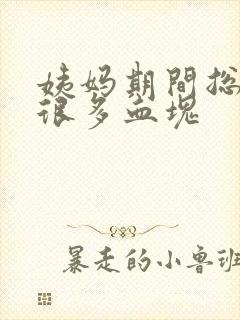 姨妈期間总
很多血塊
暴走的小鲁班